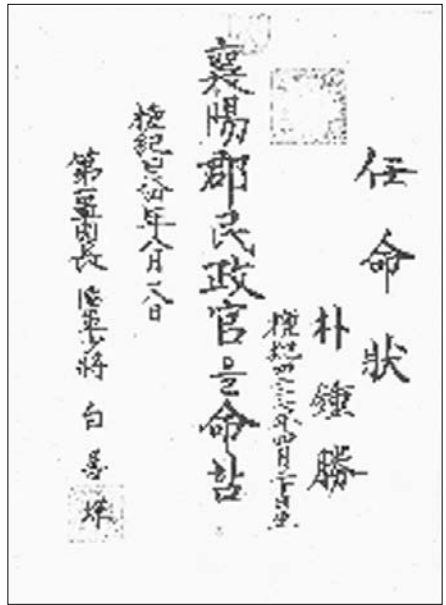 任命狀
朴鍾勝
檀紀四二 年四月二十 日生
襄陽郡民政官을命함
檀紀四二 年八月 八日
第一軍團長 陸軍少將 白善燁